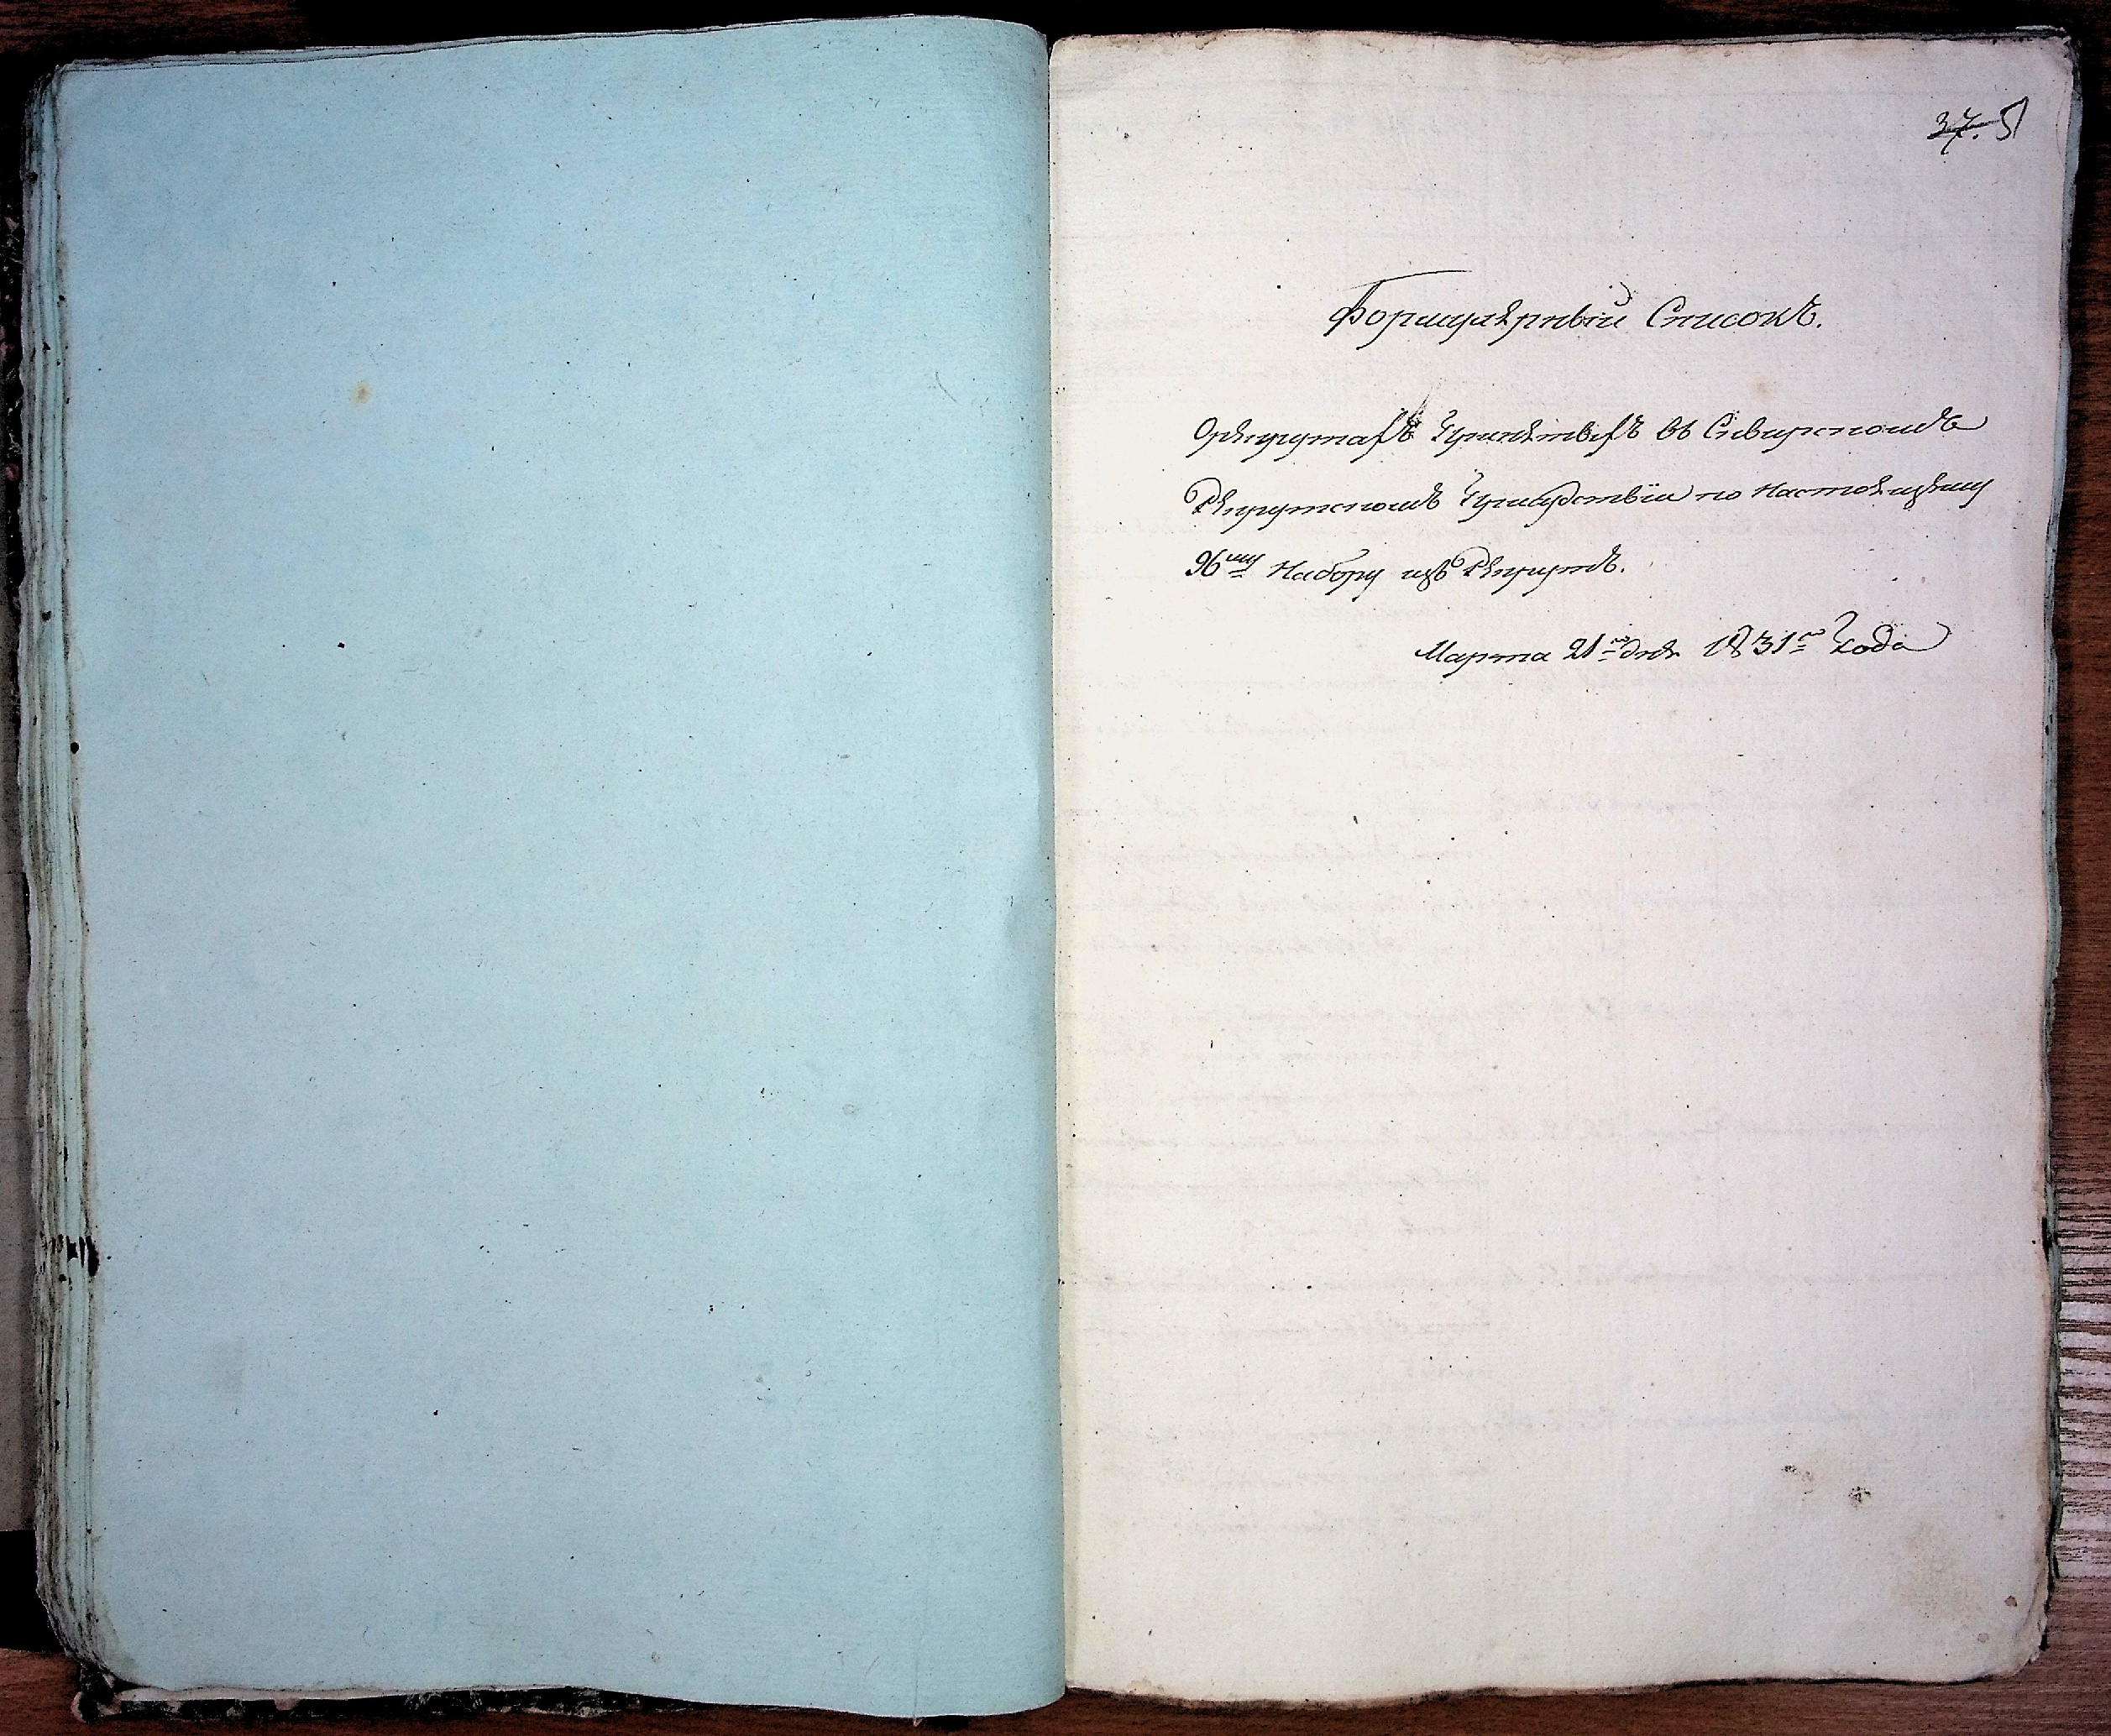 37. 51
Формулярный Списокъ.
Орекрутахъ принятыхъ въ Сибирскомъ
Рекрутскомъ присудствіи по настоящему
96му Набору изъ Рекрутъ.
Марта 21го дня 1831го Года